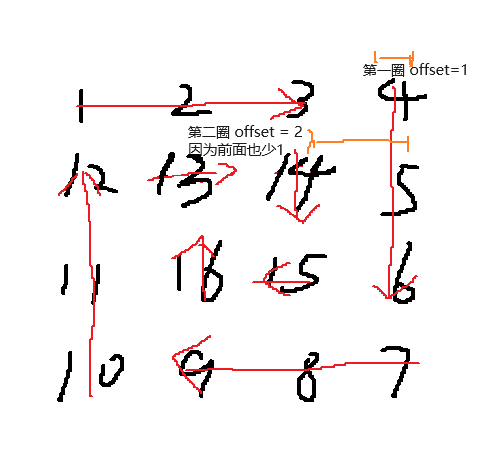 第一圈 offset=1
1 2 3 4
第二圈 offset = 2
因为前面也少1
12 13 14 5
11 16 15 6
10 9 8 7